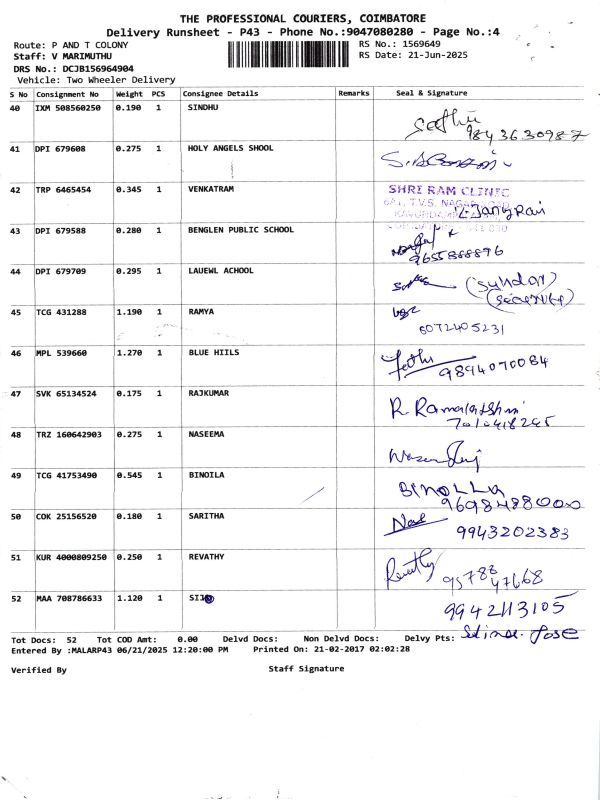 THE PROFESSIONAL COURIERS, COIMBATORE
Delivery Runsheet - P43 - Phone No.:9047080280 - Page No.:4
Route: P AND T COLONY RS No.: 1569649
Staff: V MARIMUTHU RS Date: 21-Jun-2025
DRS No.: DCJB156964904
Vehicle: Two Wheeler Delivery
S No Consignment No Weight PCS Consignee Details Remarks Seal & Signature
40 IXM 508560250 0.190 1 SINDHU
9843630987
41 DPI 679608 0.275 1 HOLY ANGELS SHOOL
42 TRP 6465454 0.345 1 VENKATRAM SHRI RAM CLINIC
43 DPI 679588 0.280 1 BENGLEN PUBLIC SCHOOL
9655888896
44 DPI 679709 0.295 1 LAUEWL ACHOOL
45 TCG 431288 1.190 1 RAMYA
6072405231
46 MPL 539660 1.270 1 BLUE HIILS
9894070084
47 SVK 65134524 0.175 1 RAJKUMAR
48 TRZ 160642903 0.275 1 NASEEMA
49 TCG 41753490 0.545 1 BINOILA BINOLLA
50 COK 25156520 0.180 1 SARITHA
9943202383
51 KUR 4000809250 0.250 1 REVATHY Revathy
95788 47668
52 MAA 708786633 1.120 1
9942113105
Tot Docs: 52 Tot COD Amt: 0.00 Delvd Docs: Non Delvd Docs: Delvy Pts: Jose
Entered By :MALARP43 06/21/2025 12:20:00 PM Printed On: 21-02-2017 02:02:28
Verified By Staff Signature